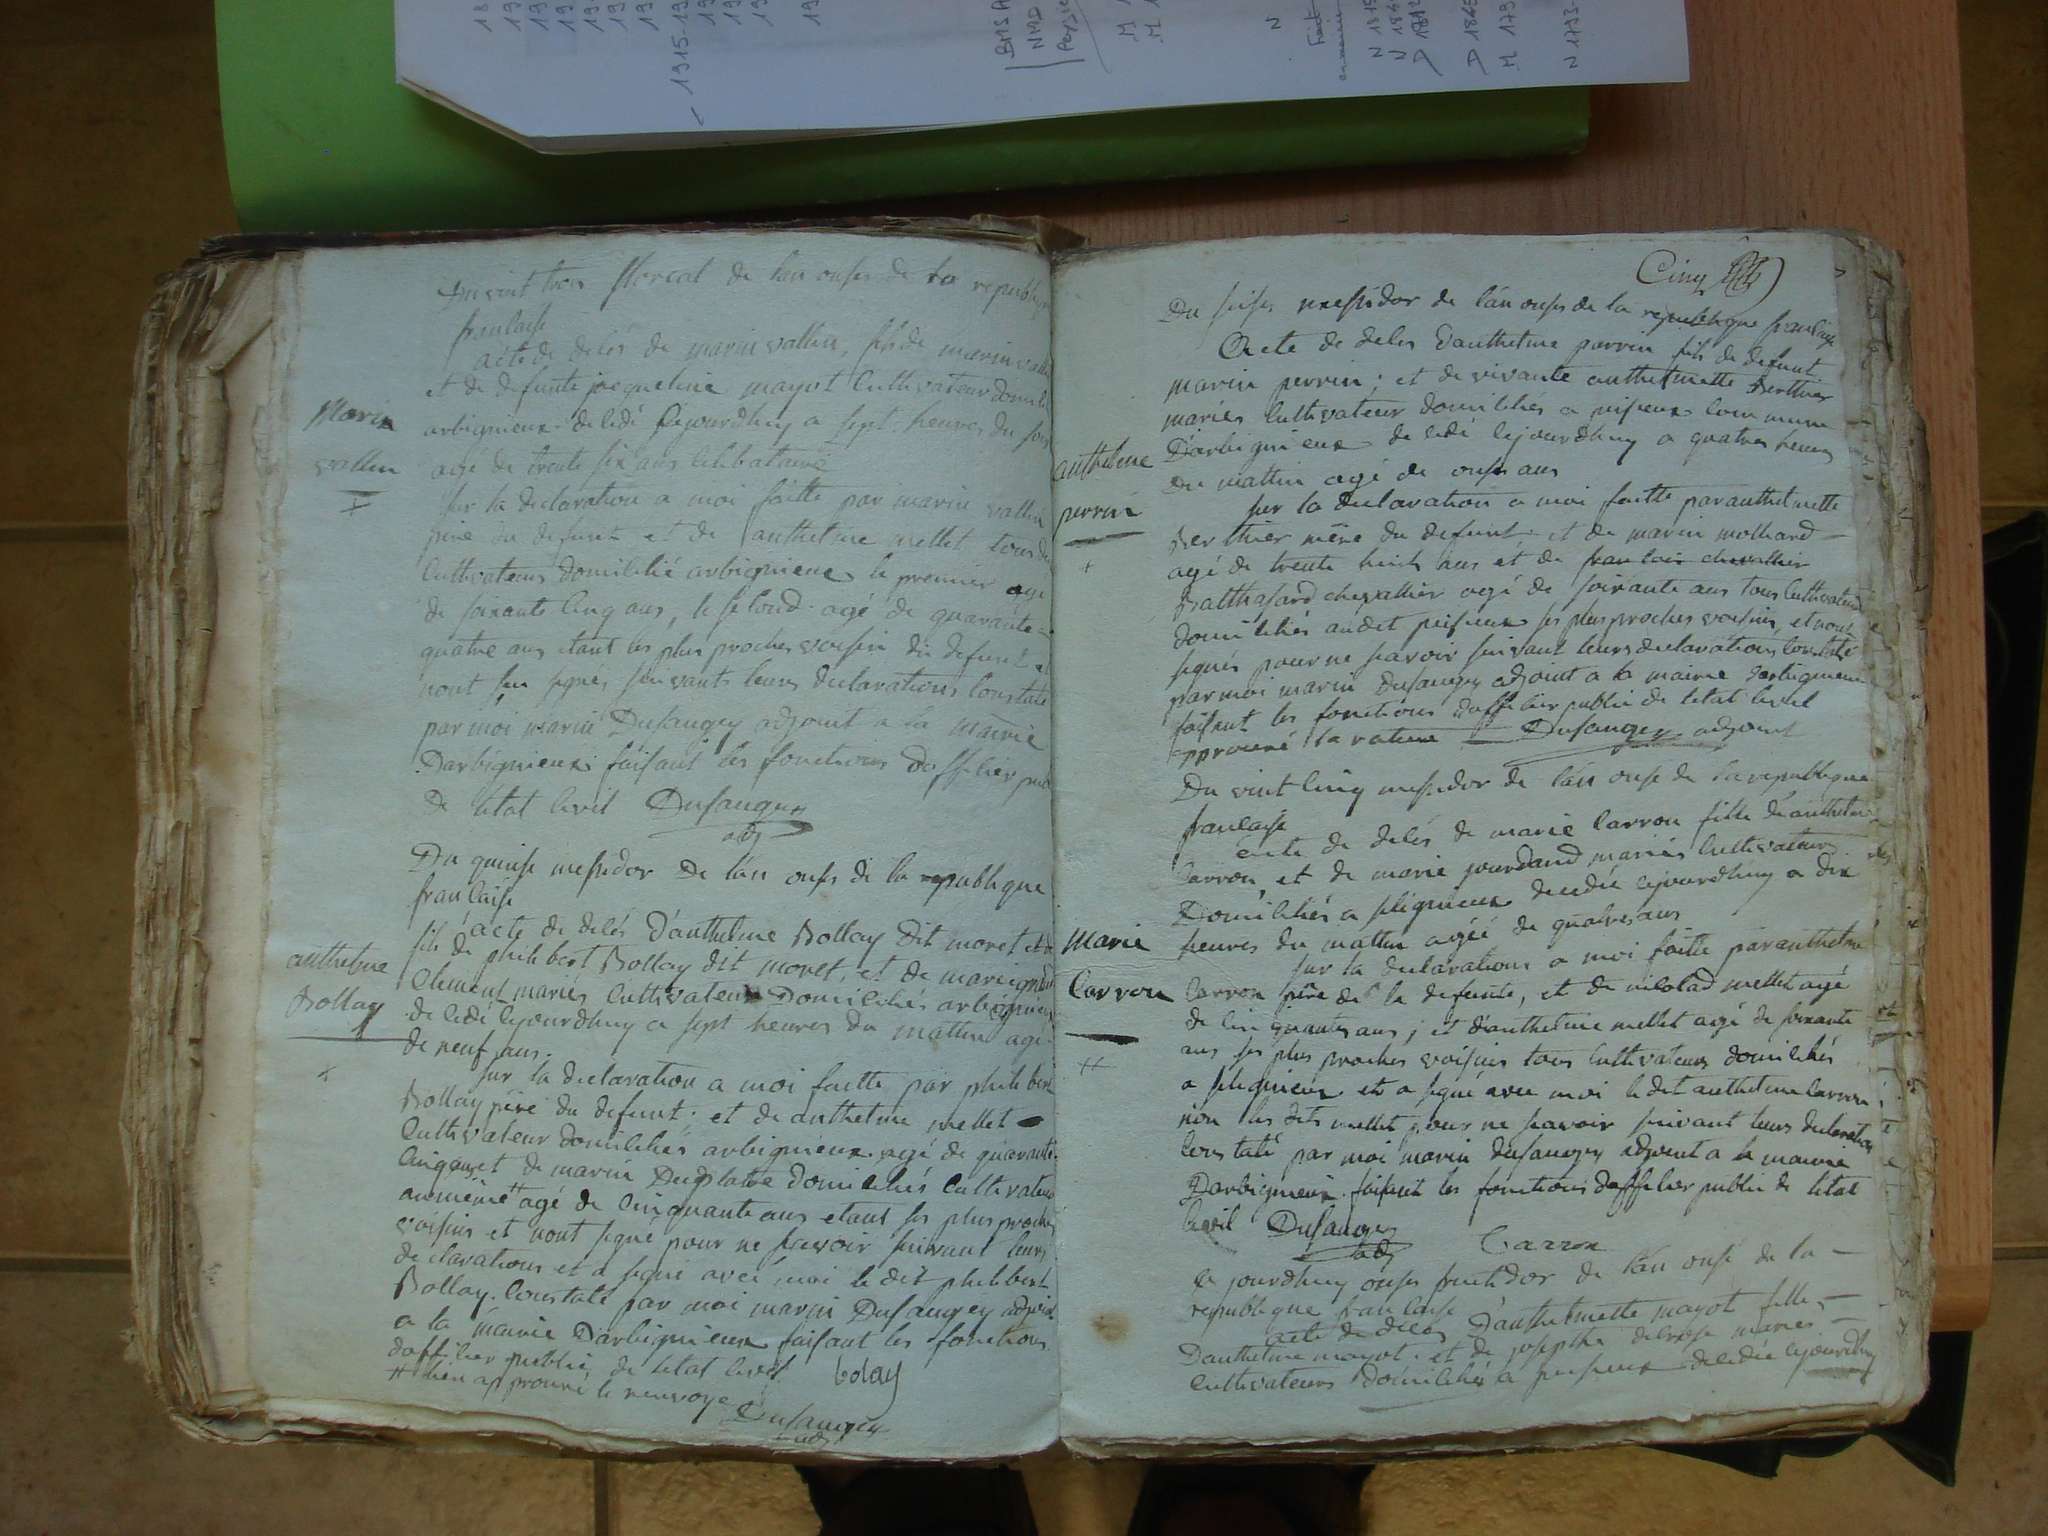 Du vint trois floreal de lán onses de la republique
franlaise
acte de delés de marin vallin, fils de marin vallin
et de defunte jacqueline mayot Cultivateur domicilié
arbignieux deledé Cejourdhuy a sept heures du soir
agé de trente six ans Celibataire
Marin
vallin
sur la declaration a moi faitte par marin vallin
pere du defunt et de anthelme mellet tous deux
Cultivateurs domicilié arbignieux le premier agé
de soixante Cinq ans, le second agé de quarante
quatre ans etant les plus proches voisin du defunt et
nont su signés suivants leurs declarations Constaté
par moi marin Dusaugey adjoint a la mairie
Darbignieux faisant les fonctions dofficier public
de letat Civil Dusaugey
adj
Du quinse messidor de lán onses de la republique
franlaise
ácte de delés dánthelme Bollay dit moret
fils de philibert Bollay dit moret, et de marie
Clement mariés Cultivateurs Domiciliés arbignieux
deledé Cejourdhuy a sept heures du mattin agé
de neuf ans.
anthelme
Bollay
sur la declaration a moi faitte par philibert
Bollay pére du defunt; et de anthelme mellet
Cultivateur domiciliés arbignieux agé de quarante
Cinq ans et de marin Duplatre domiciliés Cultivateur
au même # agé de Cinquante ans etant ses plus proches
voisins et nont signé pour ne savoir suivant leurs
declarations et a signé avec moi le dit philibert
Bollay. Constaté par moi marin Dusaugey adjoint
a la mairie Darbignieux faisant les fonctions
dofficier public de letat Civil bolay
# lieu approuvé le renvoye
Dusaugey
adj
Cinq
Du seises messidor de lán onses de la republique franlaise
Acte de deles dánthelme perrin fils de defunt
marin perrin; et de vivante anthelmette Berthier
mariés Cultivateur domiciliés a peisieux Commune
Dárbignieux deledé Cejourdhuy a quatres heures
du mattin agé de onses ans
anthelme
perrin
sur la declaration a moi faitte par anthelmette
Berthier mére du defunt; et de marin molliard
agé de trente huit ans et de franlois chevallier
Balthasard chevallier agé de soixante ans tous Cultivateurs
domiciliés audit peisieux ses plus proches voisins, et nont
signés pour ne savoir suivant leurs declarations Constaté
par moi marin Dusaugey adjoint a la mairie darbignieux
faisant les fonctions dofficier public de letat Civil
approuvé la rature Dusaugey adjoint
Du vint Cinq messidor de lán onse de la republique
franlaise
ácte de delés de marie Carron fille dánthelme
Carron, et de marie jourdand mariés Cultivateurs
Domiciliés a slignieux deledée Cejourdhuy a dix
heures du mattin agée de quatres ans
Marie
Carron
sur la declarations a moi faitte par anthelme
Carron pére de la defunte, et de nicolad mellet agé
de Cinquantes ans; et dánthelme mellet agé de soixante
ans ses plus proches voisins tous Cultivateurs domiciliés
a slignieux et a signé avec moi le dit anthelme Carron
non les dits mellet pour ne savoir suivant leurs declaration
Constaté par moi marin dusaugey adjoint a la mairie
Darbignieux faisant les fonctions dofficier public de letat
Civil Dusaugey
adj Carron
Ce jourdhuy onses fructidor de lán onse de la
republique franlaise
acte de deces dánthelmette mayot fille
Danthelme mayot et de josepthe delrose mariés
Cultivateurs domiciliés a peisieux deledée Cejourdhuy
1915-19
BMSA
NMD
N
N 1815
N 184
D 1812
D 1845
M 179
N 1793-